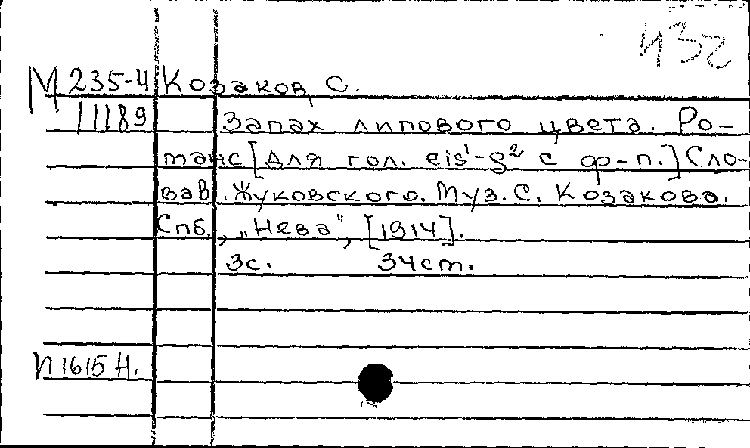 432
М 235-4 Козаков, С.
11189 Запах липового цвета. Ро-
манс [для гол. eis¹-g² с ф-п.] Сло-
ва В. Жуковского. Муз. С. Козакова.
Спб., "Нева", [1914].
3с. 34ст.
П 1615 Н.